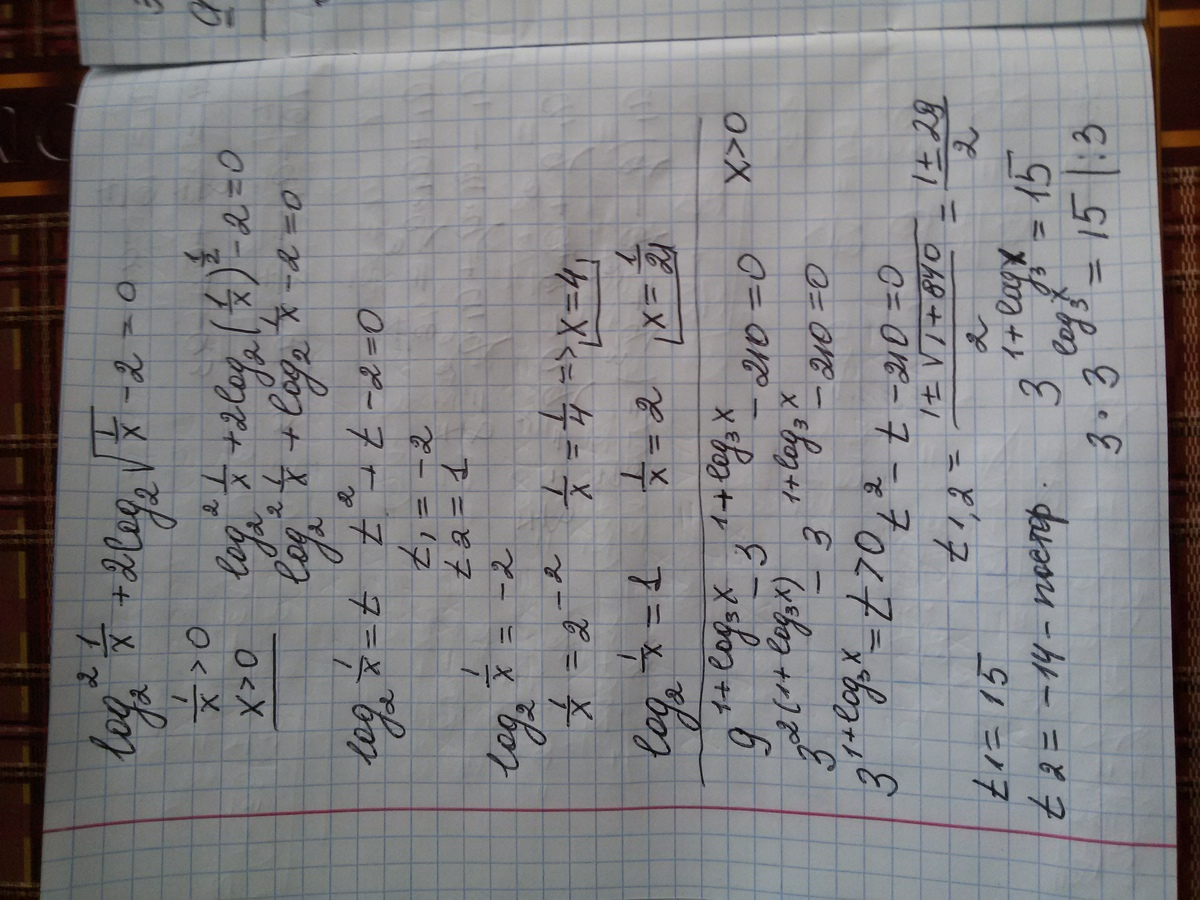 log₂² 1/x + 2log₂ √(1/x) - 2 = 0
1/x > 0
x > 0
log₂² 1/x + 2log₂ (1/x)^(1/2) - 2 = 0
log₂² 1/x + log₂ 1/x - 2 = 0
log₂ 1/x = t t² + t - 2 = 0
t₁ = -2
t₂ = 1
log₂ 1/x = -2
1/x = 2^(-2) 1/x = 1/4 => x = 4
log₂ 1/x = 1 1/x = 2 x = 1/2
9^(1+log₃x) - 3^(1+log₃x) - 210 = 0 x > 0
3^(2(1+log₃x)) - 3^(1+log₃x) - 210 = 0
3^(1+log₃x) = t > 0 t² - t - 210 = 0
t₁,₂ = (1±√(1+840))/2 = (1±29)/2
t₁ = 15
t₂ = -14 - постор. 3^(1+log₃x) = 15
3·3^(log₃x) = 15 |:3